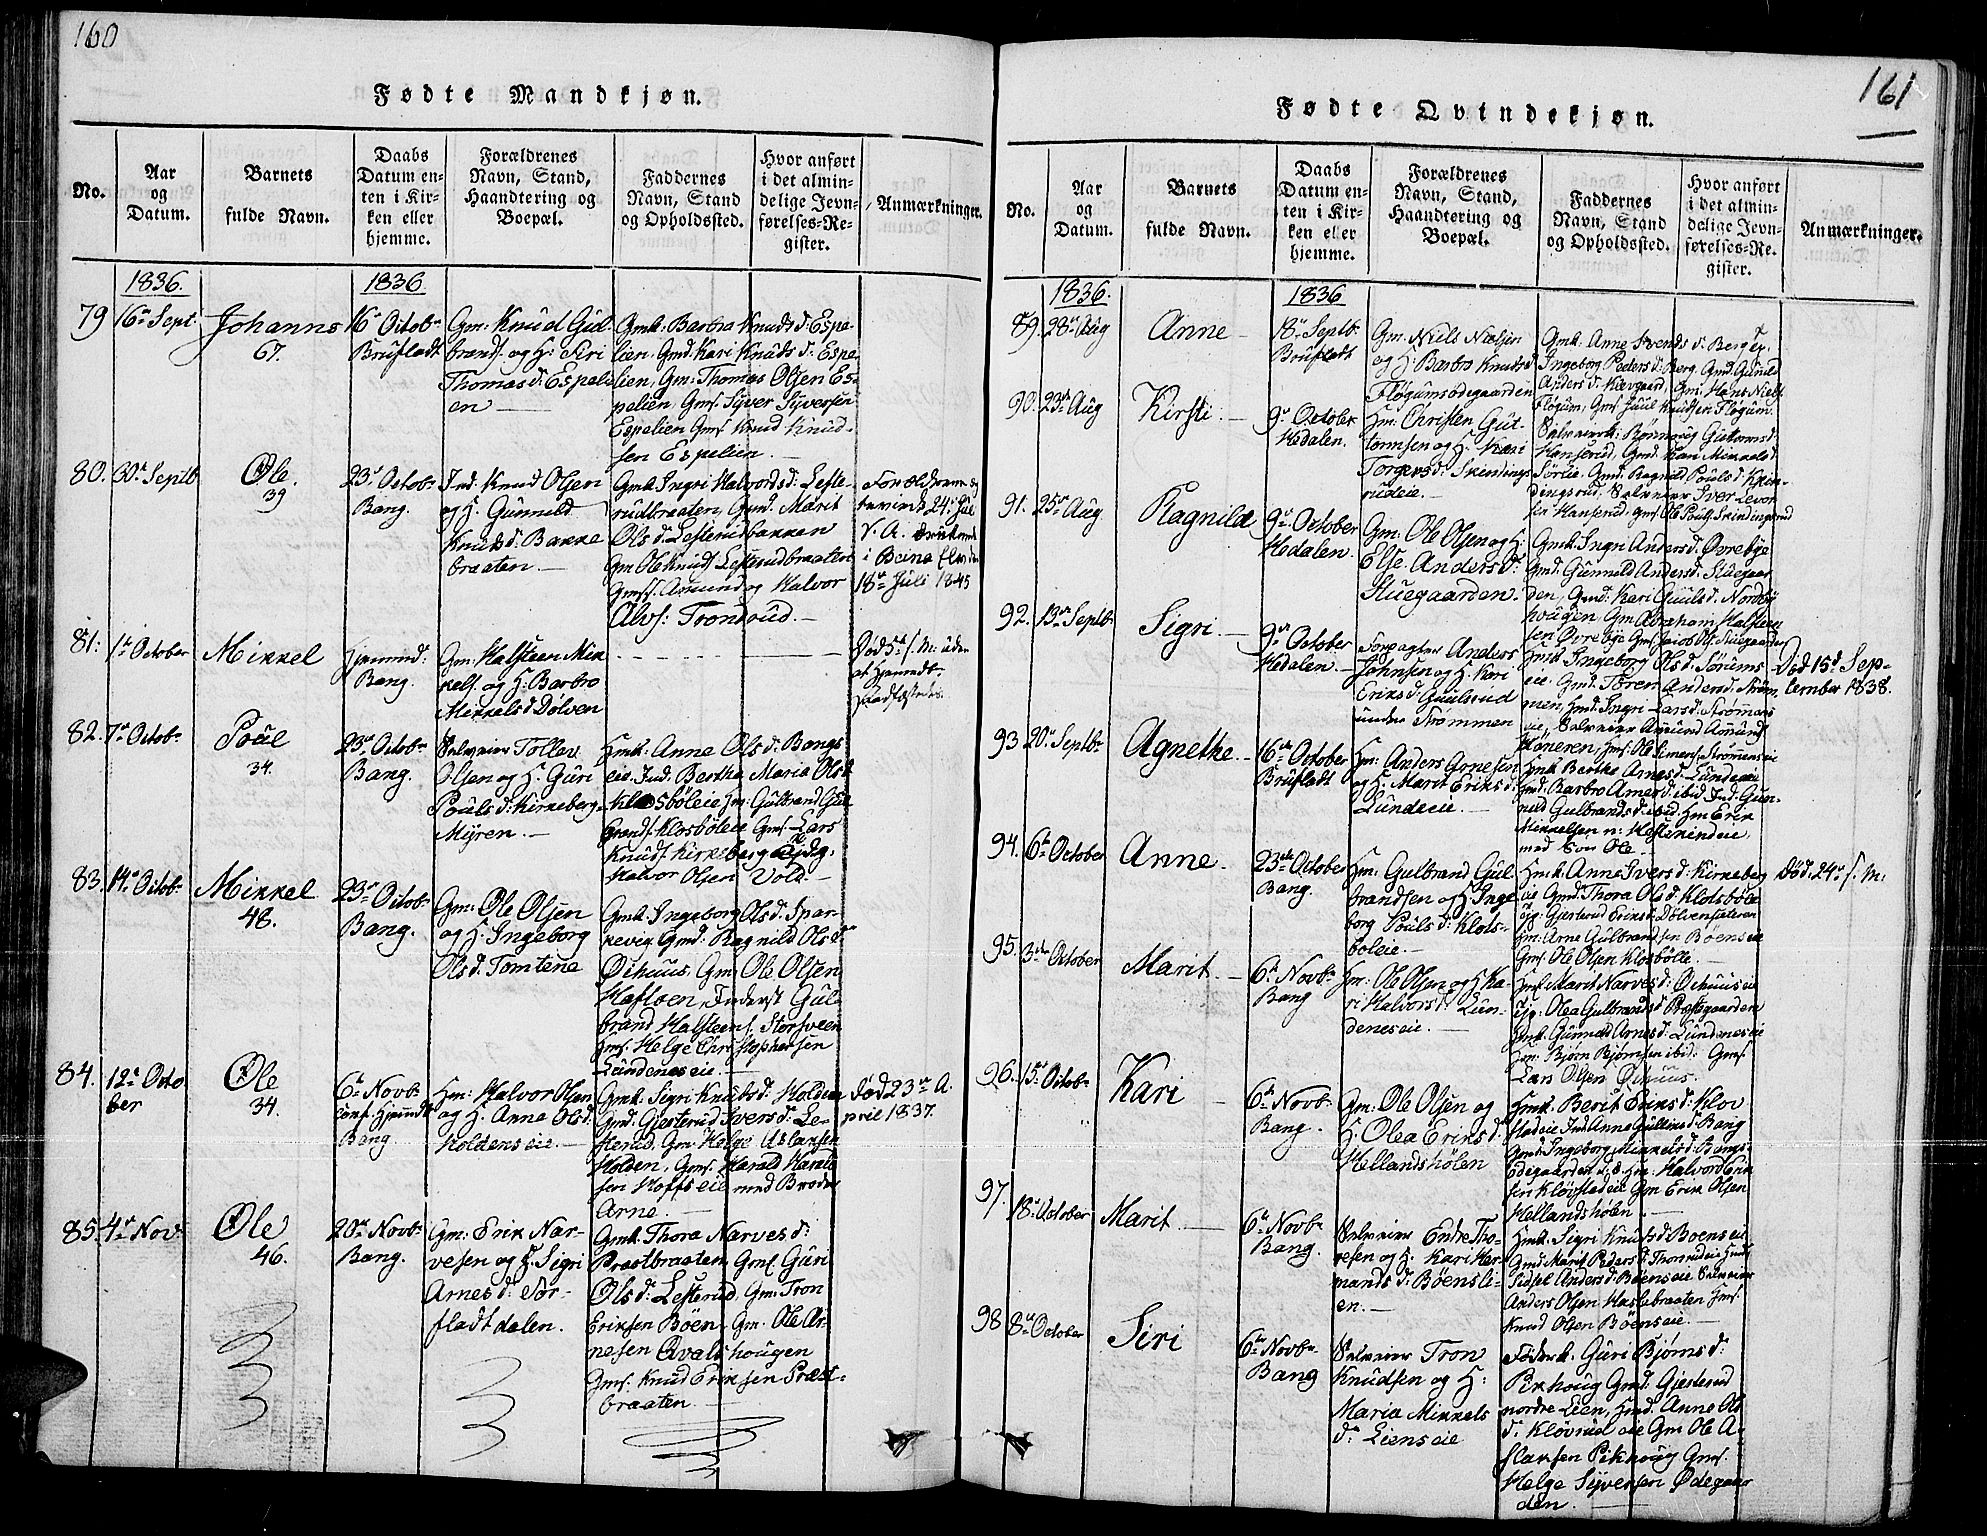 160
Fødte Mandkjøn.
No.
Aar
og
Datum.
Barnets
fulde Navn.
Daabs
Datum en-
ten i Kir-
ken eller
hjemme.
Forældrenes
Navn, Stand,
Haandtering og
Boepæl.
Faddernes
Navn, Stand
og Opholdssted.
Hvor anført
i det almin-
delige Jevn-
førelses-Re-
gister.
Anmærkninger.
1836.
1836
79
16de Sept
Johannes
67.
16de Octobr
Brufladt
Gm: Knud Gul-
brands. og H: Siri
Thomas d: Espeli-
en
Gmk: Barbra Knuds d: Espe-
lien. Gmd. Kari Knuds d: Espe-
lien, Gm: Thomas Olsen Es-
pelien, Gms. Syver Syversen
Espelien Gms. Knud Knud-
sen Espelien.
80.
30te Septb
Ole.
39
23de Octobr
Bang.
Ind. Knud Olsen
og H. Gunnild
Knuds d: Bakke
braaten.
Gmk: Ingri Halvords d: Leste-
rudbraaten, Gmd. Marit
Ols d: Lesterudbakken
Gm Ole Knuds Lesterudbraaten
Gmss. Amund og Halvor
Alvs: Trondrud.
Forældrene
24. Jul
V. A.
18de Juli 1845
81.
1te October
Mikkel
Hjemmed:
Bang.
Gm: Halsteen Mik-
kels. og H: Barbro
Mikkels d Dølven
Død 5te s. M: uden
at Hjemmedt.
stadfæstedes.
82.
7de Octobr
Poul
34.
23de Octobr
Bang.
Selveier Tollev
Olsen og H. Guri
Pouls d: Kirkeberg-
Myren.
Hmk: Anne Ols d: Bangs
eie. Ind. Bertha Maria Ols d
Klosbøleie Hm: Gulbrand Gul-
brands. Klosbøleie Gms. Lars
Knuds. Kirkeberg
Halvor Olsen Vold.
83.
14de Octobr
Mikkel
48.
23de Octobr
Bang.
Gm: Ole Olsen
og H. Ingeborg
Ols d: Tomtene
Gmk: Ingeborg Ols d: Spar-
kevig Gmd: Ragnild Ols d
Øehuus Gm: Ole Olsen
Hafloen, Inderst Gul-
brand Halsteens. Storsveen
Hms. Helge Christophersen
Lundenes eie.
84.
12te Octo
ber
Ole
34.
6te Novb
conf. Hjemdt
Bang.
Hm: Halvor Olsen
og H. Anna Ols d.
Holdens eie.
Gmk: Sigri Knuds d: Holden
Gmd. Gjesterud Ivers d: Le-
sterud, Gm: Helge Aslaksen
Holden, Gms. Harald Harald-
sen Hoffs eie med Broder
Arne.
Død 23de A-
pril 1837.
85.
4de Nov
Ole
46.
20de Novb
Bang.
Gm: Erik Nar-
vesen og H. Sigri
Arnes d: Tor-
fladtdalen.
Gmk: Thora Narves d:
Præstbraaten Gms. Guri
Ols d: Lesterud Gm: Tron
Eriksen Bøen. Gm. Ole Ar-
nesen Qvalshougen
Gms. Knud Eriksen Præst-
braaten
161
Fødte Qvindekjøn.
No.
Aar
og
Datum.
Barnets
fulde Navn.
Daabs
Datum en-
ten i Kir-
ken eller
hjemme.
Forældrenes
Navn, Stand,
Haandtering og
Boepæl.
Faddernes
Navn, Stand
og Opholdssted.
Hvor anført
i det almin-
delige Jevn-
førelses-Re-
gister.
Anmærkninger.
1836.
1836
89.
28de Aug
Anne
18de Septb.
Brufladt
Gm. Niels Nielsen
og H: Barbro Knuds d
Fløgumsødegaarden
Gmk: Anne Svends d: Berg
Ingeborg Peders d: Berg Gmd. Gunild
Anders d: Gm. Hans Niels.
Fløgum, Gms. Juul Knudsen Fløgum.
90.
23de Aug
Kirsti
9de October
Hedalen.
Hm: Christen Gut-
tormsen og H. Kari
Torgers d: Skindings-
rudeie.
Selveierk: Rønnoug Gutorms d:
Hanserud, Gmd. Kari Mikkels d
Sørlie. Gmd. Ragnild Pouls d: Skin-
dingsrud, Selveier Iver Levor
sen Hanserud, Gms. Ole Pouls. Skindingsrud
91.
25de Aug
Ragnild
9de October
Hedalen.
Gm: Ole Olsen og H.
Else Anders d:
Stuegaarden.
Gmk: Ingri Anders d. Øvrebye
Gmd: Gunnild Anders d: Stuegaar
den, Gmd: Kari Guuls d: Nordby
hougen Gm: Abraham Halsteen
sen Øvrebye Gms. Jacob Ols. Stuegaarden
92.
13de Septb.
Sigri
9de October
Hedalen
Forpagter Anders
Johnsen og H. Kari
Eriks d: Guulsrud
under Strømmen
Hmd: Ingeborg Ols d: Sørums-
eie. Gmd: Toren Anders d: Strøm-
men, Hmd: Ingri Lars d: Strømmens
eie, Selveier Amund Amunds
Høneren, Hms. Ole Simens. Strømmenseie
Død 15de Sep-
tember 1838.
93
20de Septb
Agnethe
16de October
Brufladt
Hm: Anders Arnesen
og H. Marit Eriks d:
Lundeeie.
Hmk Berthe Arnes d: Lundeeie
Gmd: Barbro Arnes d: ibid Ind: Gun-
nild Gulbrands d: ibid. Hm Erik
Mikkelsen n: Hestekindeie,
med Søn Ole.
94.
6te October
Anne
23de October
Bang.
Hm: Gulbrand Gul
brandsen og H. Inge
borg Pouls d: Klos-
boleie.
Hmk: Anne Ivers d: Kirkeberg
eie Gmd: Thora Ols d: Klosbøle
Pg: Gjesterud Eriks d: Dølvensæteren
Hm: Arne Gulbrandsen Bøens eie
Gms. Ole Olsen Klosbølle.
Død. 24de s. M:
95.
3de October
Marit
6te Novb
Bang
Hm: Ole Olsen og H. Ka-
ri Halvors d: Lun-
deneseie.
Hmk Marit Narves d: Øehuus eie
Pg: Olea Gulbrands d Præstegaarden
Hmk: Gunnild Arnes d: Lundeneseie
Hm: Bjørn Bjørnsen ibid: Gms.
Lars Olsen Øehuus.
96.
15de Octob
Kari
6te Novb.
Bang.
Gm: Ole Olsen og
H. Olea Eriks d:
Hellandshølen
Hmk: Berit Eriks d: Kløv
stadeie Ind. Anne Gullins d: Bang
Gmd: Ingeborg Mikkels d: Bangs-
ødegaarden Hm: Halvor Erik
sen Kløvstadeie Gm Erik Olsen
Hellandshølen
97.
18de October
Marit
6te Novb
Bang.
Selveier Endre Tho-
resen og H. Kari Her-
mands d: Bøensli-
en.
Hmk: Sigri Knuds d Boens eie
Gmd: Marit Peders d: Thonrudeie Hmd:
Sidsel Anders d: Bøens eie Selveier
Anders Olsen Haslebraaten Hms.
Knud Olsen Bøens eie
98
8de October
Siri
6te Novb
Bang
Selveier Tron
Knudsen og H:
Maria Mikkels
d: Lienseie
Føderk. Guri Bjørns d:
Pikhoug Gmd: Gjesterud
nordre Lien, Hmd. Anne Ols
d. Kløvrud eie Gm Ole A-
slaksen Pikhoug Gms.
Helge Syversen Ødegaar
den.